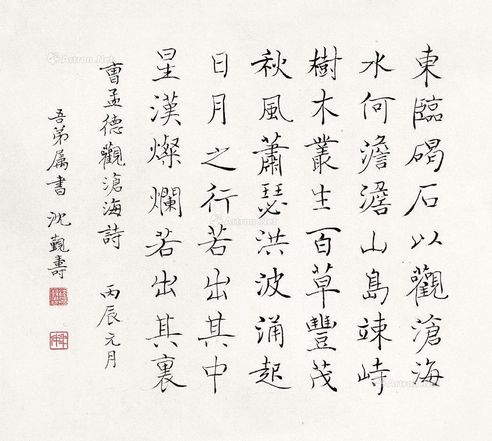 東臨碣石以觀滄海
水何澹澹山島竦峙
樹木叢生百草豐茂
秋風蕭瑟洪波涌起
日月之行若出其中
星漢燦爛若出其裏
曹孟德觀滄海詩 丙辰元月
吾弟属書 沈覲壽